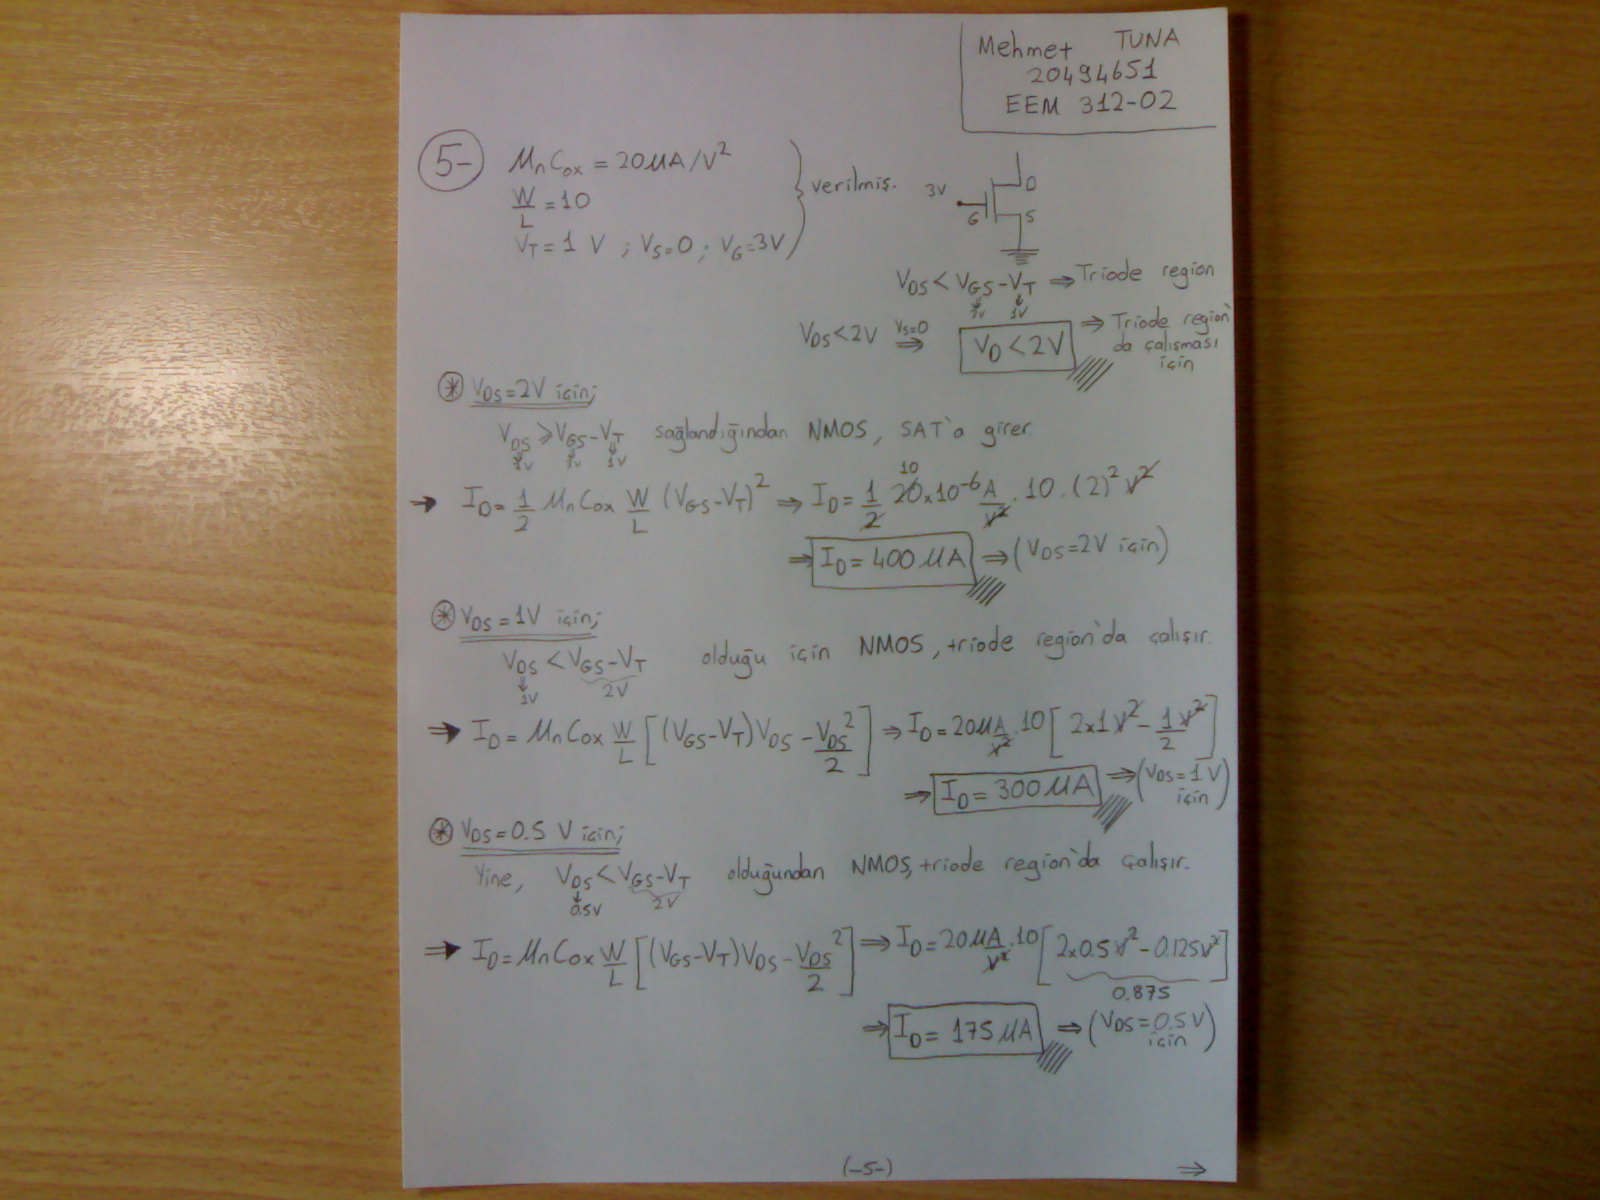 Mehmet TUNA
20494651
EEM 312-02
5- μnCox = 20μA/V²
W/L = 10
VT = 1 V ; VS=0 ; VG=3V
verilmiş.
3V
D
G
S
VDS < VGS - VT ⇒ Triode region
3V 1V
VDS < 2V VS=0 ⇒ VD < 2V ⇒ Triode region'
da çalışması
için
* VDS = 2V için;
VDS ≥ VGS - VT sağlandığından NMOS, SAT'a girer
2V 3V 1V
→ ID = 1/2 μnCox W/L (VGS-VT)² ⇒ ID = 1/2 20x10⁻⁶ A/V² . 10 . (2)² V²
10
⇒ ID = 400 μA ⇒ (VDS=2V için)
* VDS = 1V için;
VDS < VGS - VT olduğu için NMOS, triode region'da çalışır.
1V 2V
⇒ ID = μnCox W/L [(VGS-VT)VDS - VDS²/2] ⇒ ID = 20μA/V² . 10 [2x1V² - 1/2 V²]
⇒ ID = 300 μA ⇒ (VDS = 1 V
için)
* VDS = 0.5 V için;
Yine, VDS < VGS - VT olduğundan NMOS, triode region'da çalışır.
0.5V 2V
⇒ ID = μnCox W/L [(VGS-VT)VDS - VDS²/2] ⇒ ID = 20μA/V² . 10 [2x0.5V² - 0.125V²]
0.875
⇒ ID = 175 μA ⇒ (VDS = 0.5 V
için)
(-5-) ⇒